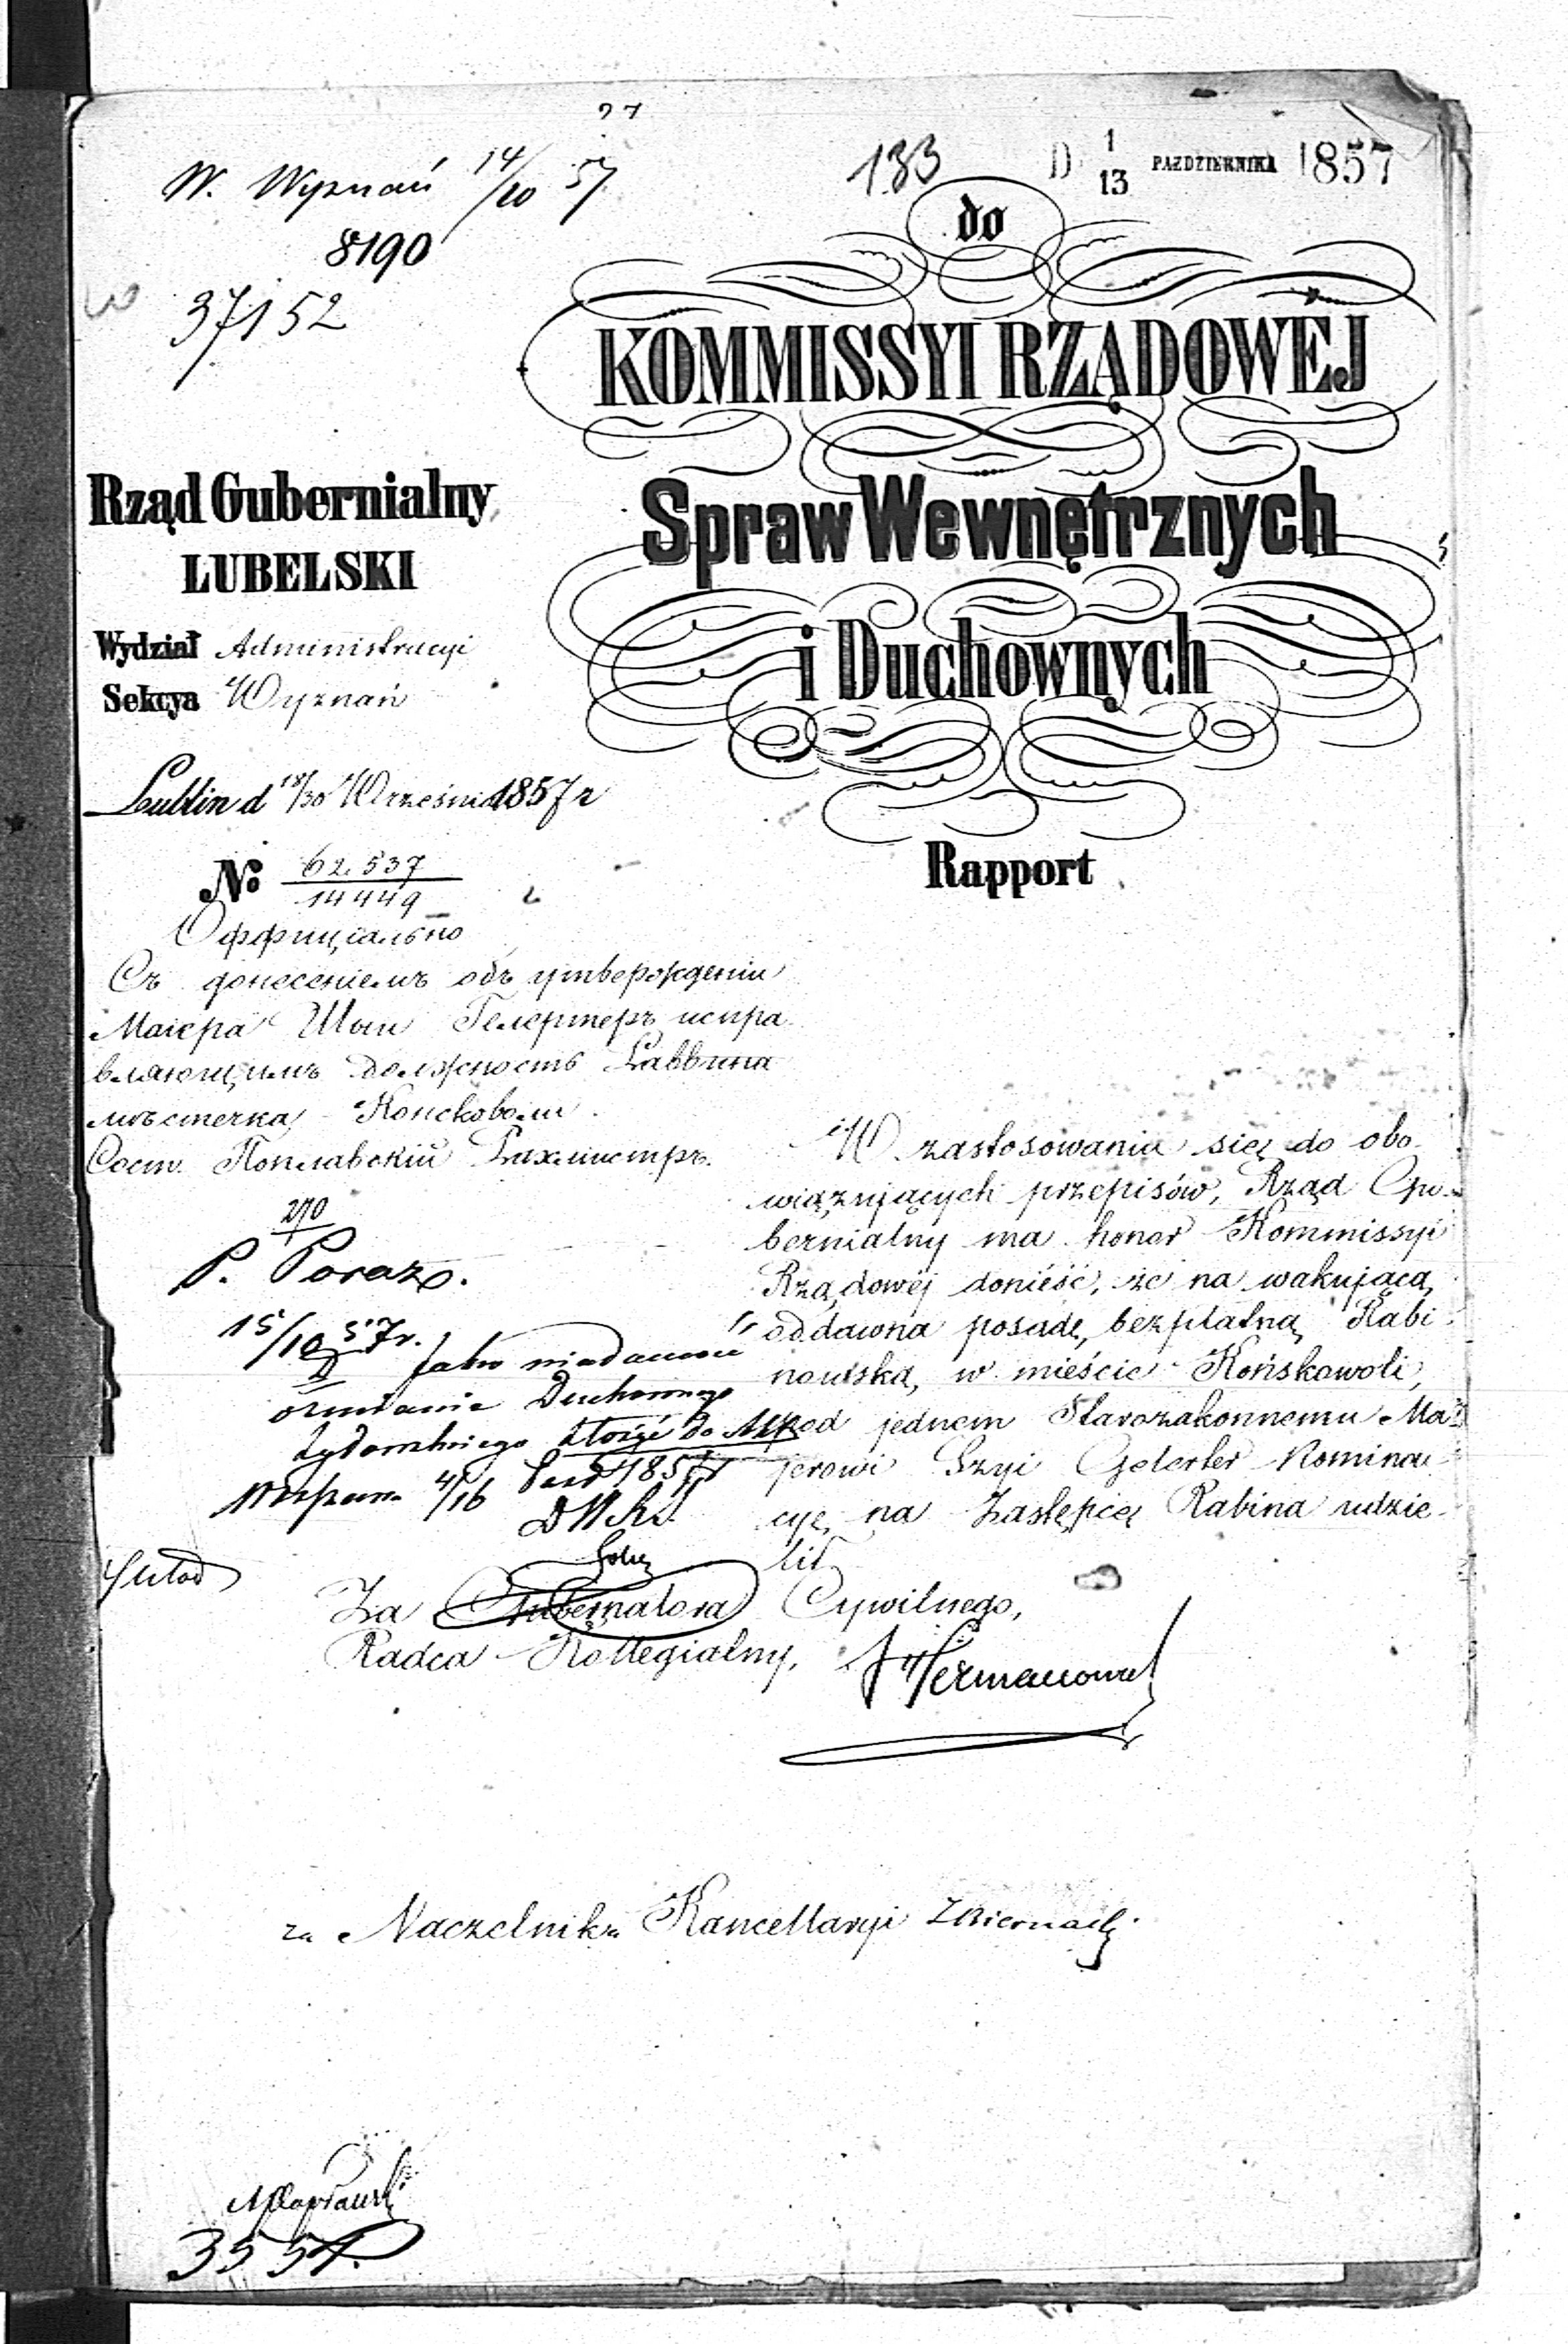 27
W. Wyznań 14/10 57
183
D 1/13 PAZDZIERNIKA 1857
8190
37152
do
KOMMISSYI RZĄDOWÉJ
Spraw Wewnętrznych
i Duchownych
Rapport
Rząd Gubernialny
LUBELSKI
Wydział Administracyi
Sekcya Wyznań
Lublin d 18/30 Września 1857 r
№ 62.537
14449
Оффиціально
Съ донесеніемъ объ утвержденіи
Маіера Шыи Гелертеръ испра
вляющимъ должность Раввина
мѣстечка Консковоли
Сост. Поплавскій
W zastosowaniu się do obo
wiązujących przepisów, Rząd Gu
bernialny ma honor Kommissyi
Rządowéj donieść, że na wakującą
oddawna posadę, bezpłatną Rabi
nowską, w mieście Końskowoli,
pod jednem Starozakonnemu Ma
jerowi Szyi Gelerter Nomina
cyę, na Zastępcę Rabina udzie
lił
270
P.
15/10 57r.
Duchownego
złożyć do
4/16
Za Gubernatora Cywilnego,
Radca Kollegialny,
za Naczelnika Kancellaryi